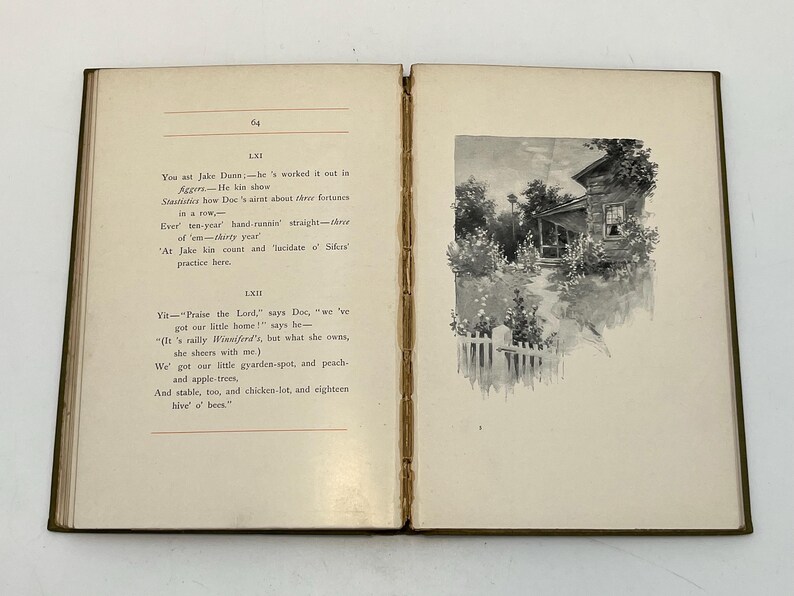 64
LXI
You ast Jake Dunn;—he 's worked it out in
figgers.—He kin show
Stastistics how Doc 's airnt about three fortunes
in a row,—
Ever' ten-year' hand-runnin' straight—three
of 'em—thirty year'
'At Jake kin count and 'lucidate o' Sifers'
practice here.
LXII
Yit—"Praise the Lord," says Doc, "we 've
got our little home!" says he—
"(It 's railly Winniferd's, but what she owns,
she sheers with me.)
We' got our little gyarden-spot, and peach-
and apple-trees,
And stable, too, and chicken-lot, and eighteen
hive' o' bees."